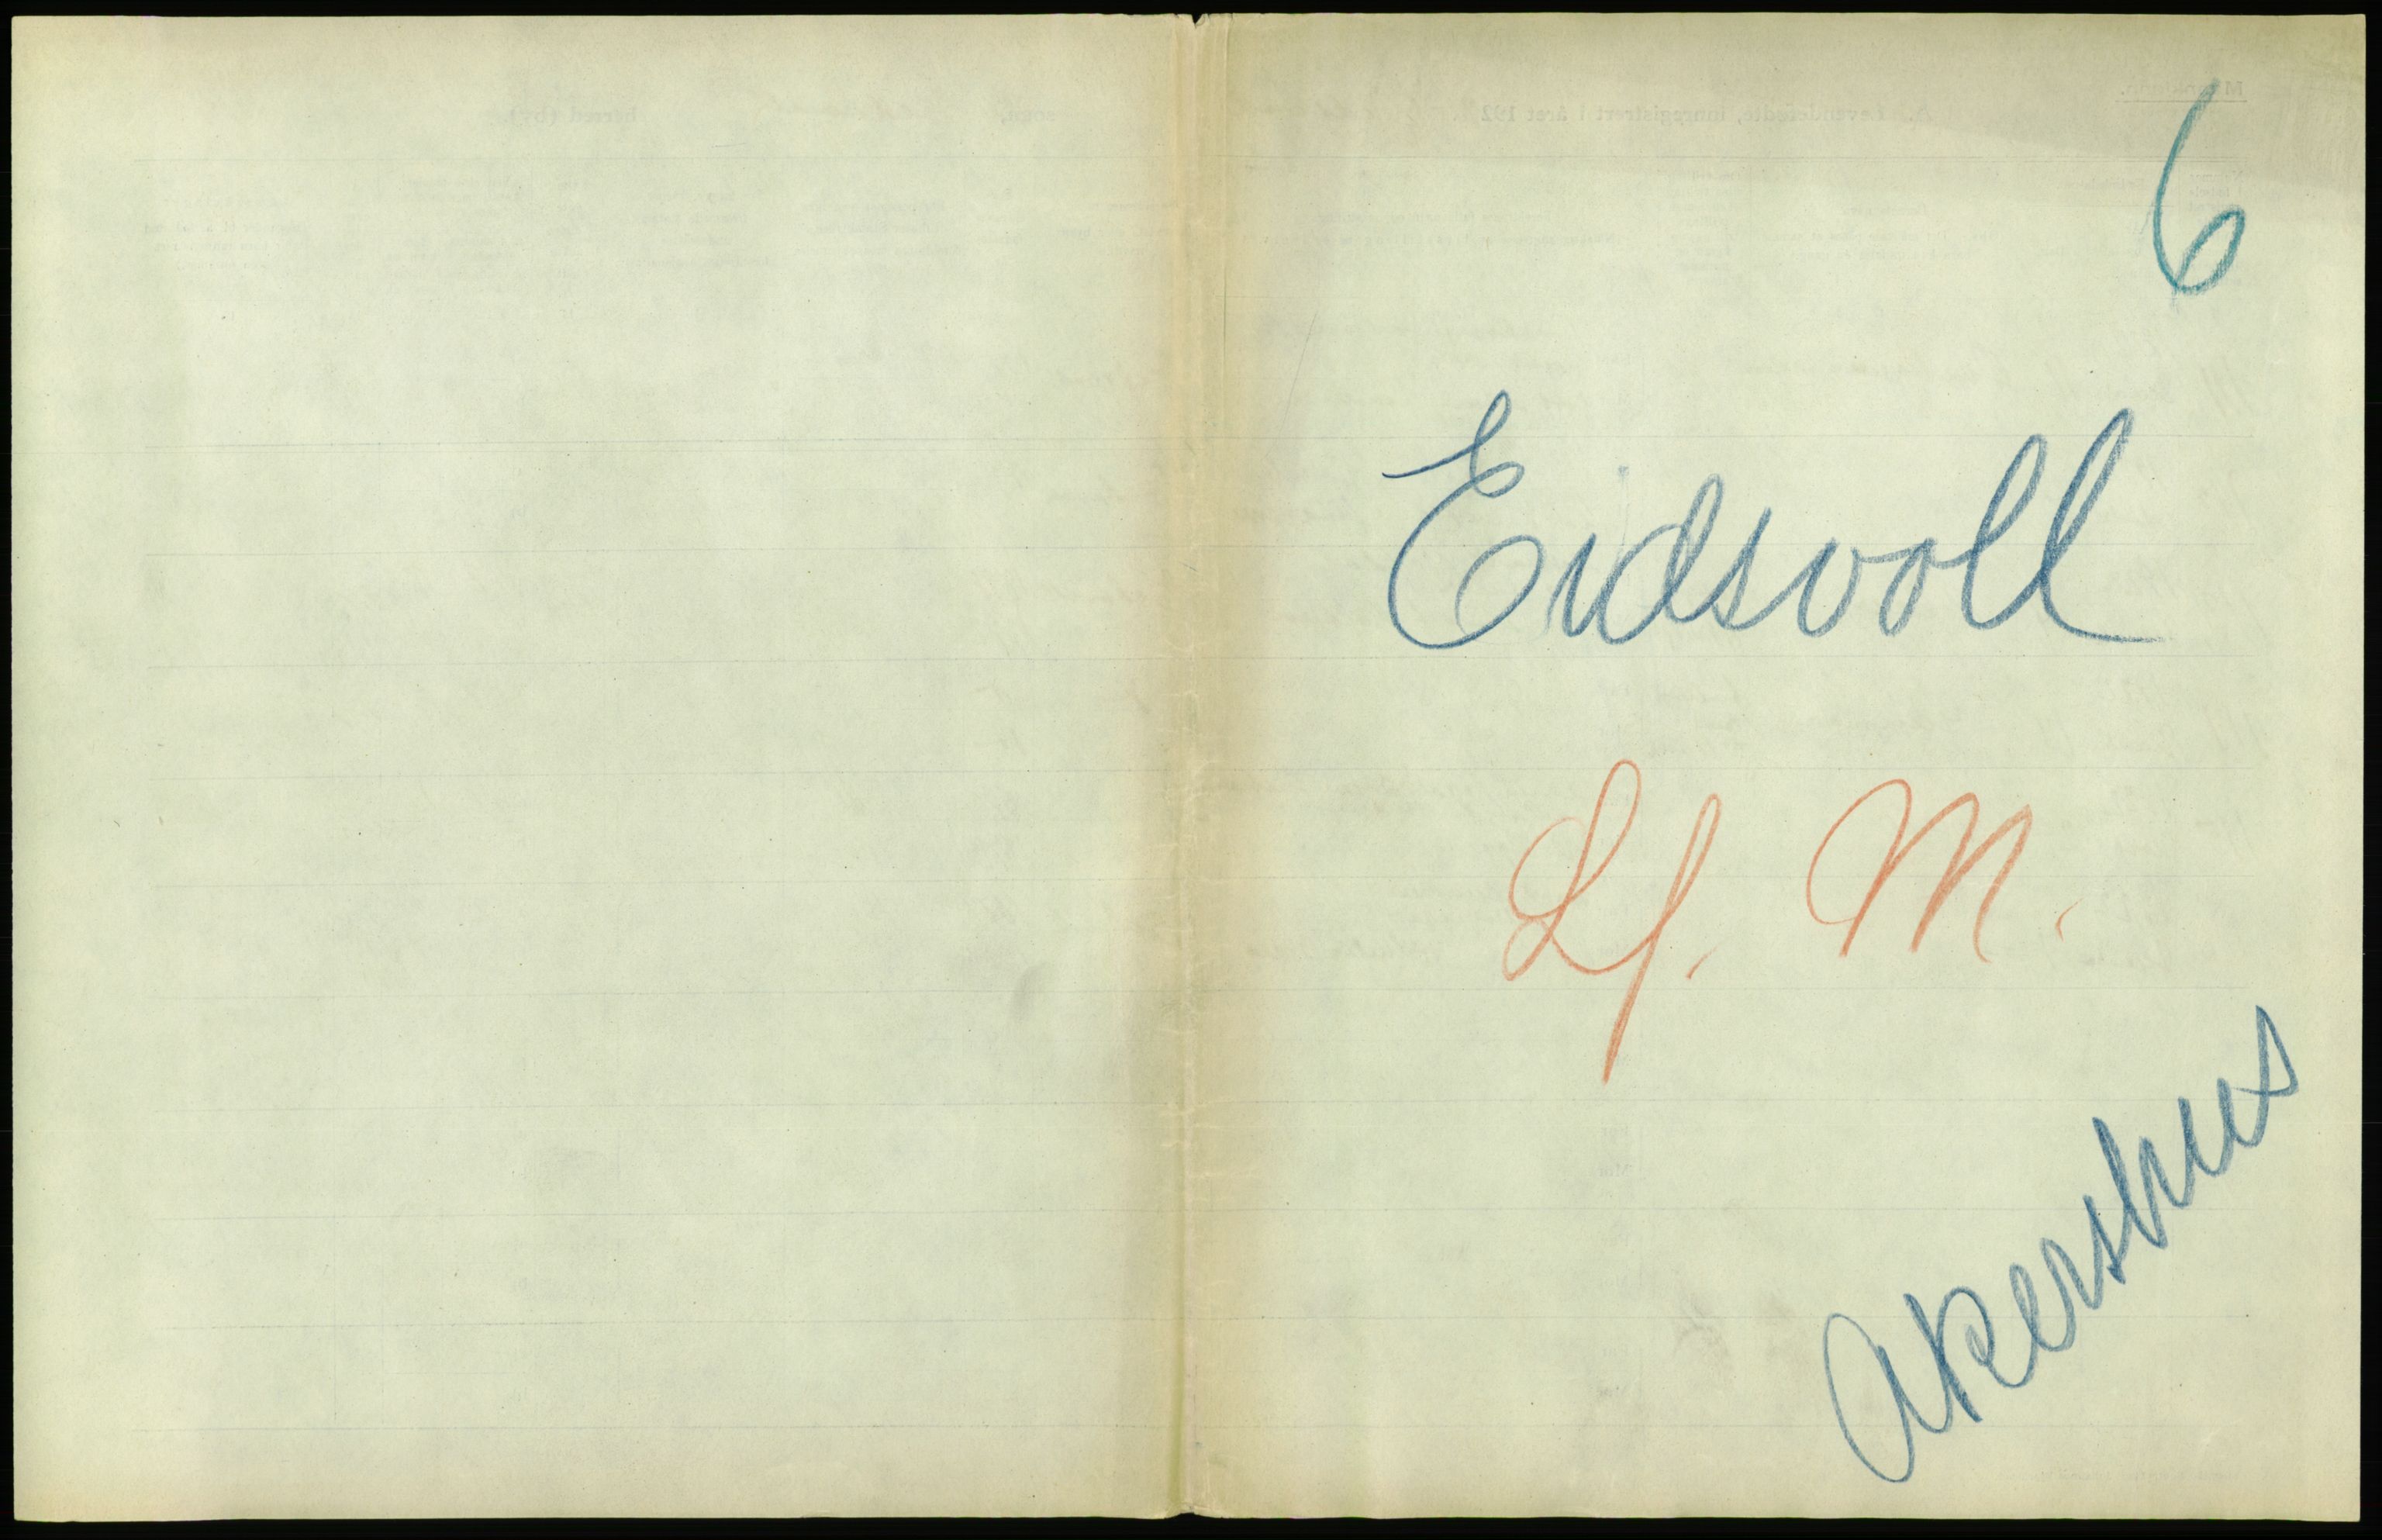 6
Eidsvoll
Lf. M.
Akershus